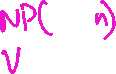 NP( n)
V